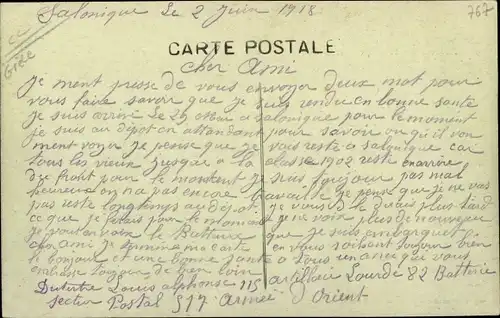 Salonique Le 2 Juin 1918
767
CARTE POSTALE
cher Ami
Je ment presse de vous envoyer deux mot pour
vous faire savoir que je suis rendu en bonne sante
je suis arrivé Le 29 Mai a salonique pour le moment
je suis au depot en attendant pour savoir ou qu'il von
ment voyer je pense que je vais reste a salonique car
tous les vieux jusqua a la classe 1902 reste en arrire
du front pour le moment je suis toujour pas mal
heureux on na pas encore travaille je pense que je ne vas
pas reste longtemps au depot je vous le plus tard
ce que je ferais pour le moment je ne vois plus de nouveau
je voudrai voir le que je suis embarquet
cher ami je termine ma carte en vous soitant toujour bien
le bonjour et une bonne sante a tous un ami qui vous
embrasse toujour de bien loin
Dutertre Louis alphonse 115 artillerie Lourde 82 Batterie
secteur Postal 517 Armée d'Orient